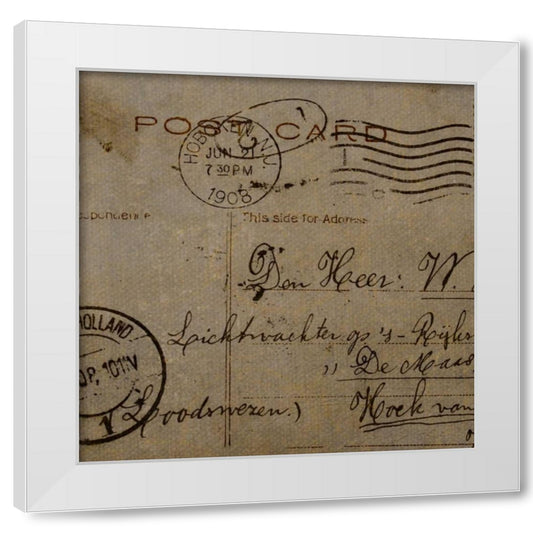 POST CARD
HOBOKEN, N.J.
JUN 21
7 30 PM
1908
spondence
This side for Address
Den Heer: W.
Lichtwachter op 's- Rijks
,, De Maas
(Loodswezen.)
Hoek van
HOLLAND